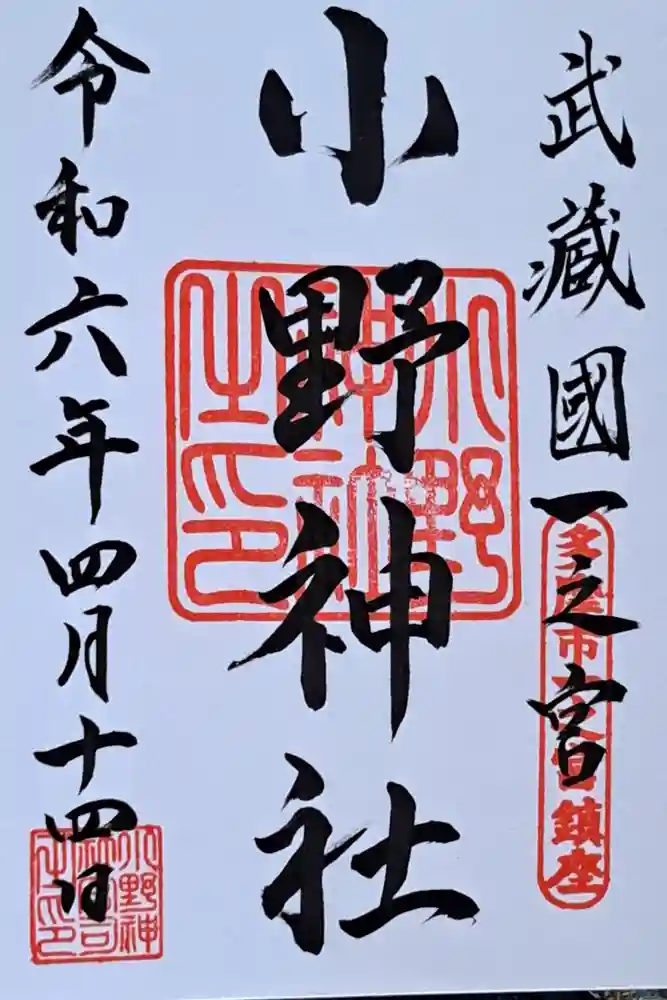 武藏國一之宮
多摩市一之宮鎮座
小野神社
小野神社之印
令和六年四月十四日
小野神社宮司之印